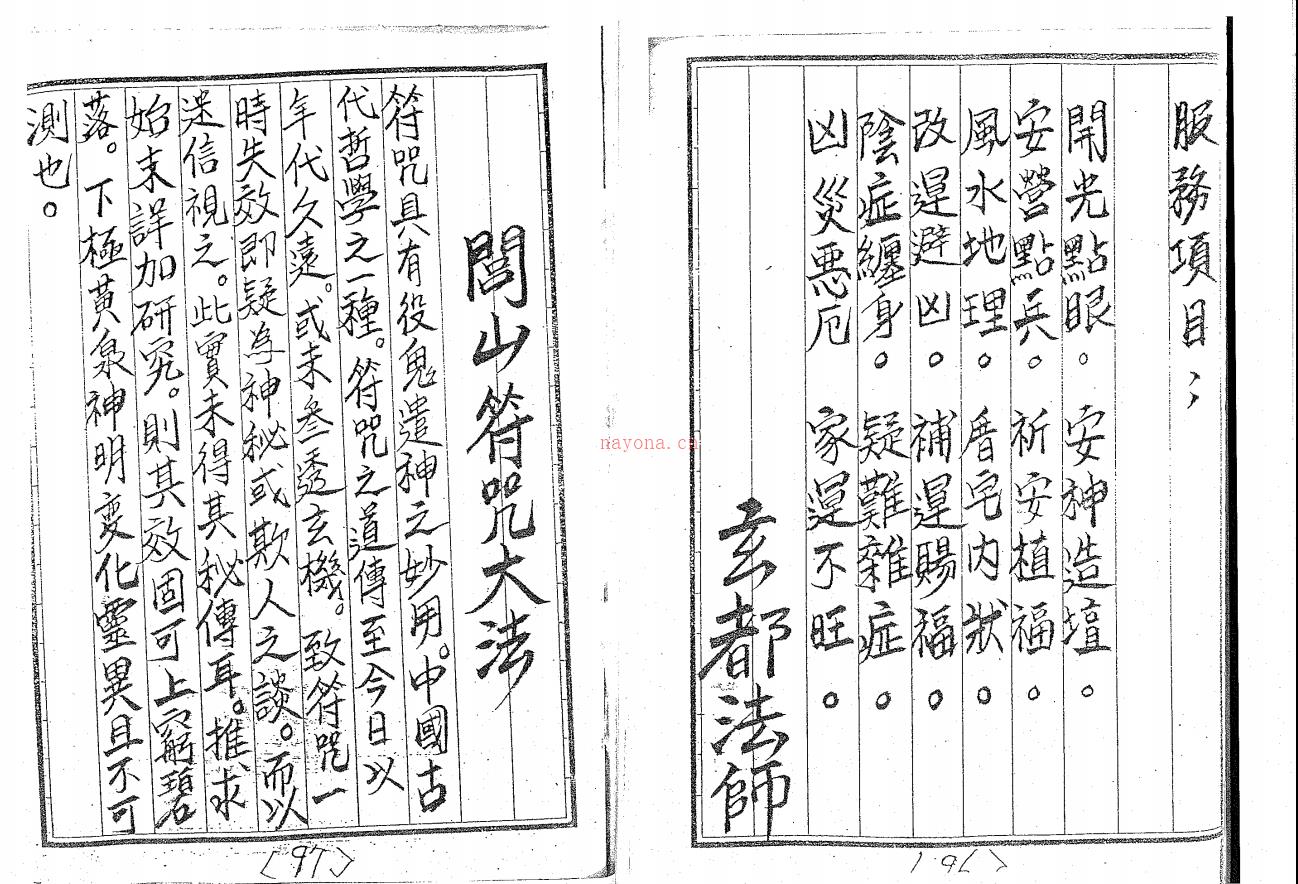 服務項目：
開光點眼。安神造壇。
安營點兵。祈安植福。
風水地理。厝宅內狀。
改運避凶。補運賜福。
陰症纏身。疑難雜症。
凶災惡厄 家運不旺。
玄都法師
<96>
閭山符咒大法
符咒具有役鬼遣神之妙用。中國古
代哲學之一種。符咒之道傳至今日以
年代久遠。或未叁透玄機。致符咒一
時失效即疑為神秘或欺人之談。而以
迷信視之。此實未得其秘傳耳。推求
始末詳加研究。則其效固可上窮碧
落。下極黃泉神明变化靈異且不可
測也。
<97>
nayona.cn